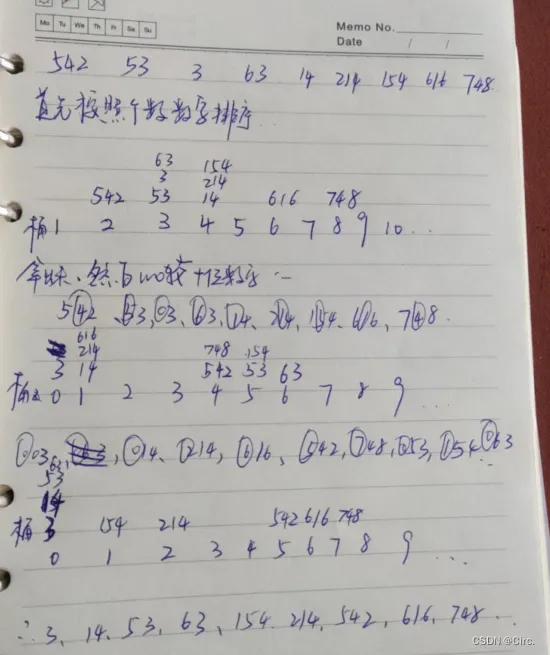 Mo Tu We Th Fr Sa Su
Memo No.
Date / /
542 53 3 63 14 214 154 616 748
首先按照个数数字排序
63 154
3 214
542 53 14 616 748
桶 1 2 3 4 5 6 7 8 9 10 ...
拿出来、然后 较十位数字 ...
542、53, 03, 63, 14、214, 154、616, 748.
616
214 748 154
3 14 542 53 63
桶 0 1 2 3 4 5 6 7 8 9 ...
003, 014、214, 616, 542, 748, 053, 154 063
63
53
14
桶 3 154 214 542 616 748
0 1 2 3 4 5 6 7 8 9 ...
∴ 3、14、53、63、154 214、542、616、748 ..
CSDN @Clrc.